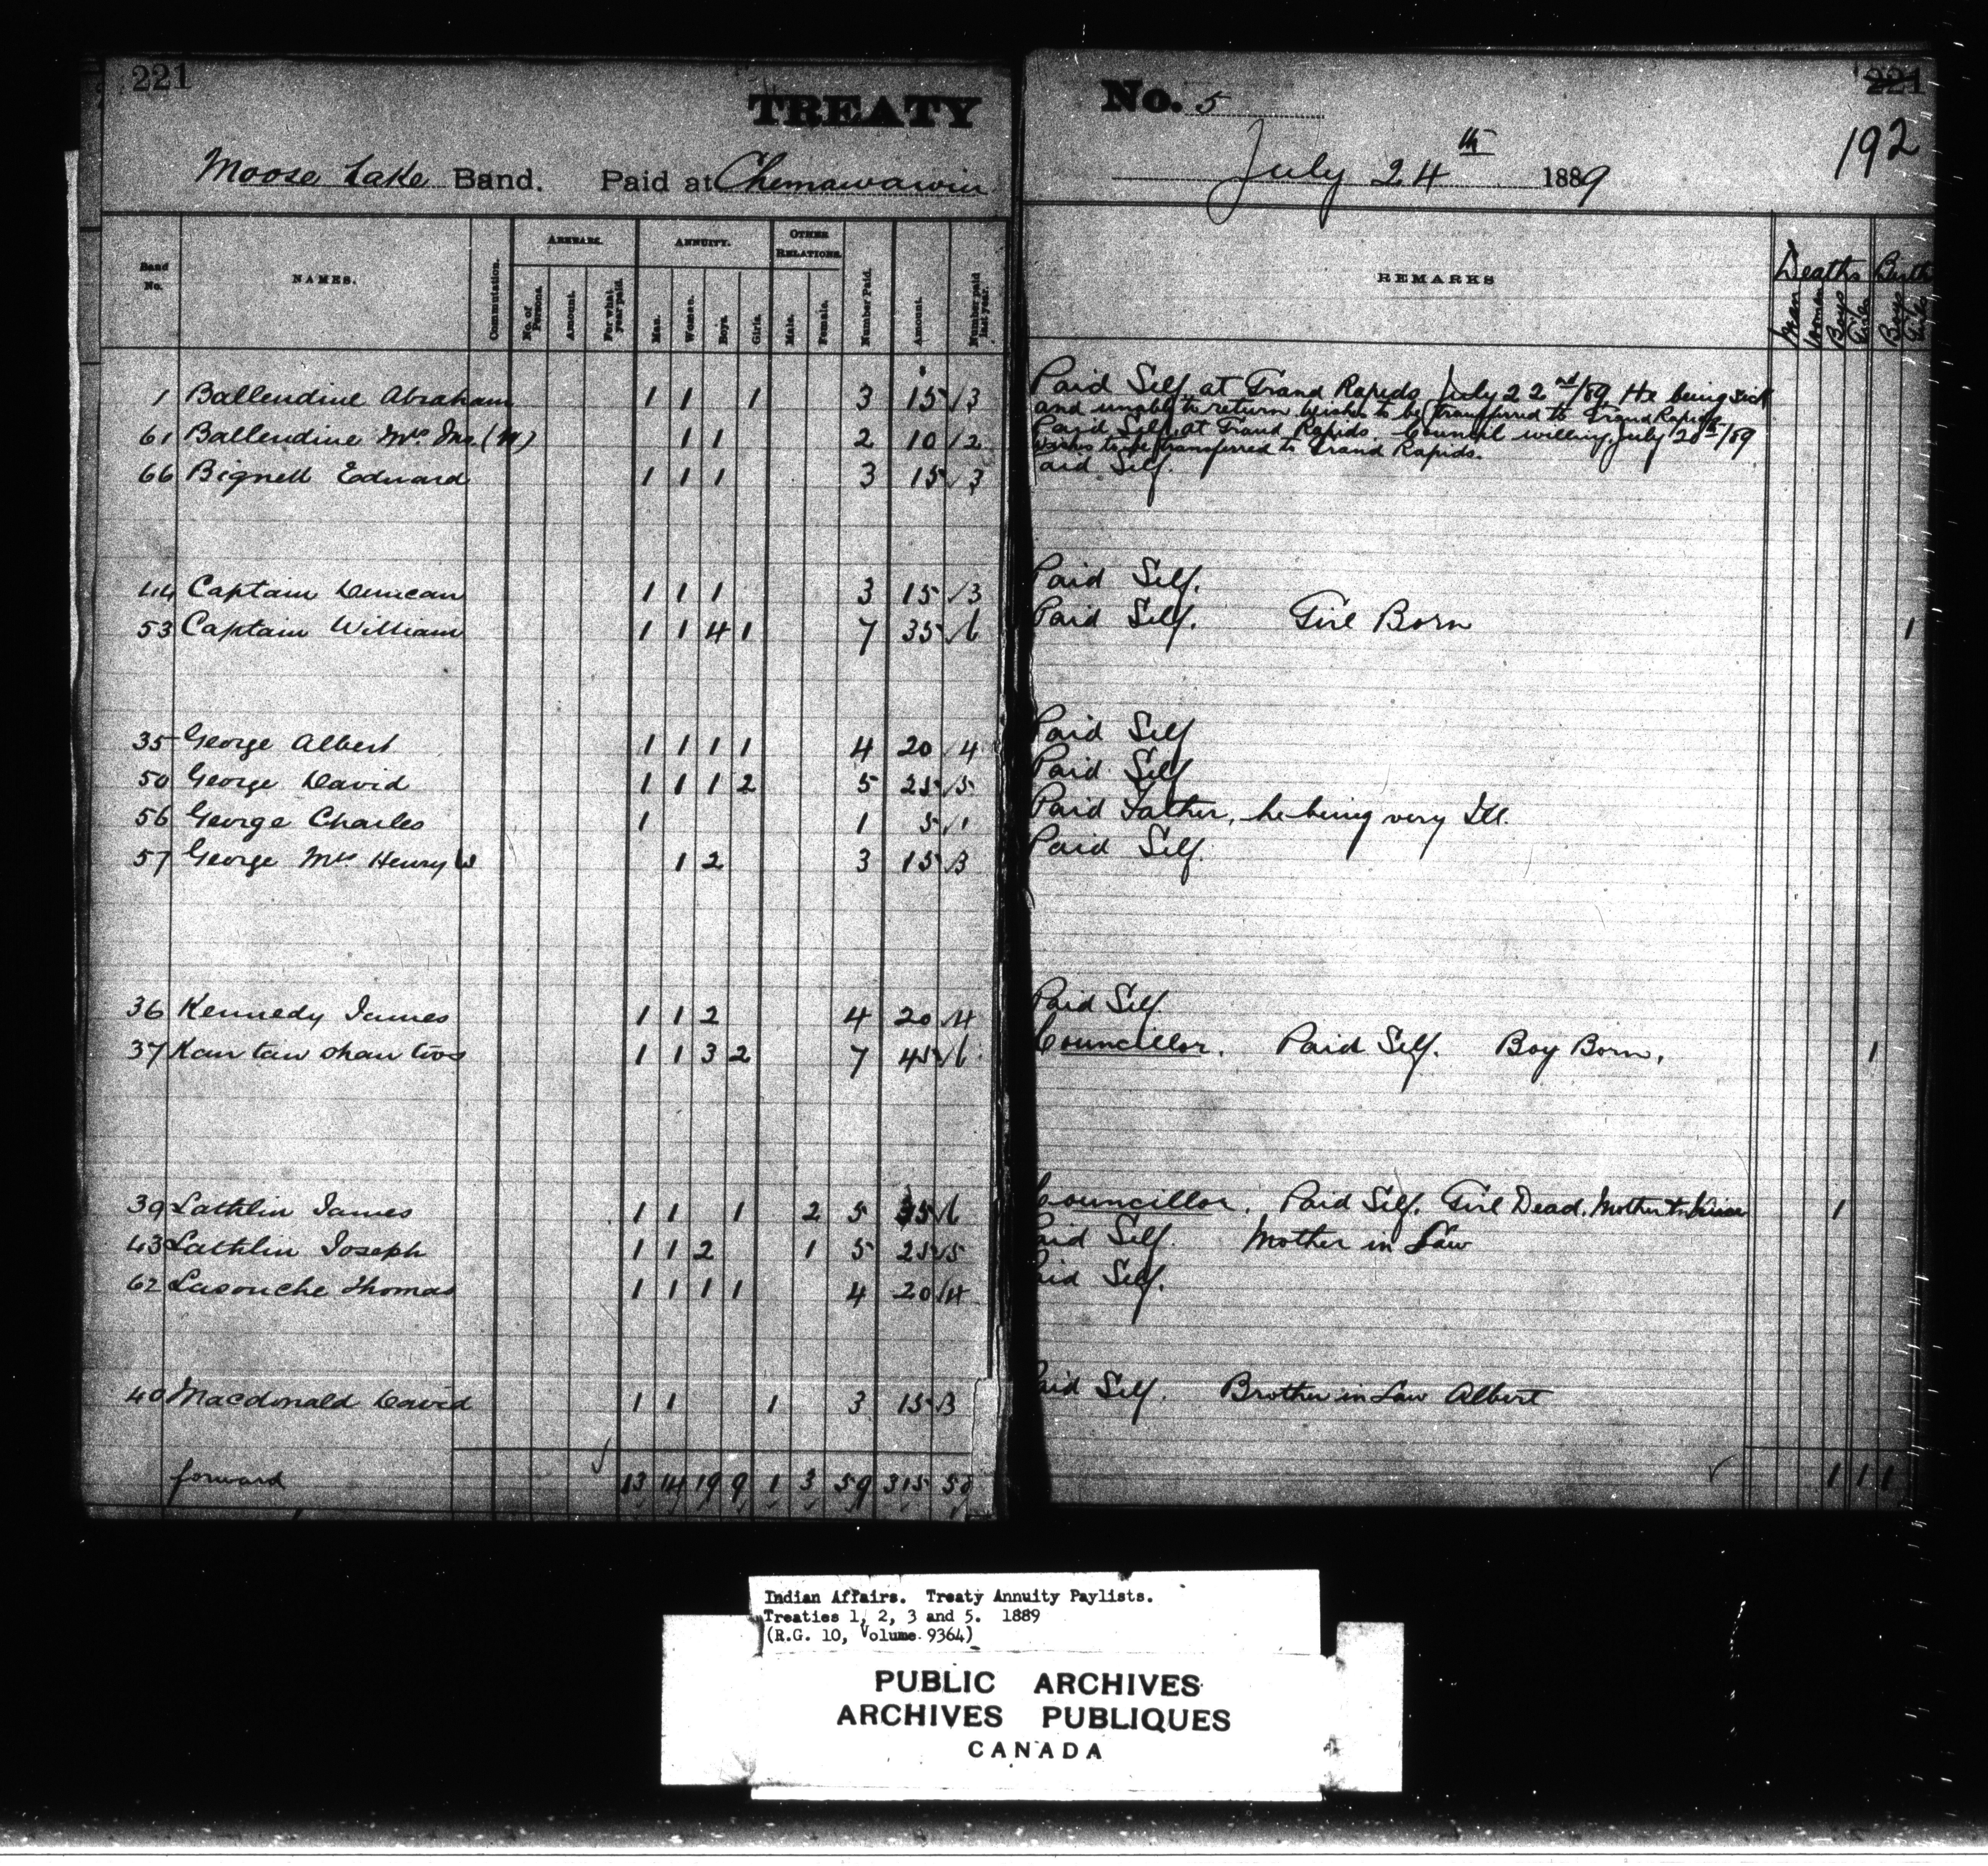 221
TREATY No. 5
221
192
Moose Lake Band. Paid at Chemawawin July 24th 1889
Band No. NAMES. Commutation. ARREARS. No. of Persons. Amount. For what year paid. ANNUITY. Men. Women. Boys. Girls. OTHER RELATIONS. Male. Female. Number Paid. Amount. Number paid last year. REMARKS Deaths Men Women Boys Girls Births Boys Girls
1 Ballendine Abraham 1 1 1 3 15 / 3 Paid Self at Grand Rapids July 22nd/89 He being sick
and unable to return wishes to be transferred to Grand Rapids
61 Ballendine Mrs Jno. (W) 1 1 2 10 / 2 Paid Self at Grand Rapids. Council willing July 20th/89
Wishes to be transferred to Grand Rapids.
66 Bignell Edward 1 1 1 3 15 / 3 Paid Self.
44 Captain Duncan 1 1 1 3 15 / 3 Paid Self.
53 Captain William 1 1 4 1 7 35 / 6 Paid Self. Girl Born 1
35 George Albert 1 1 1 1 4 20 / 4 Paid Self
50 George David 1 1 1 2 5 25 / 5 Paid Self
56 George Charles 1 1 5 / 1 Paid Father, he being very Ill.
57 George Mrs Henry W 1 2 3 15 / 3 Paid Self.
36 Kennedy James 1 1 2 4 20 / 4 Paid Self.
37 Kau taw ohau twos 1 1 3 2 7 45 / 6 Councillor. Paid Self. Boy Born. 1
39 Lathlin James 1 1 1 2 5 35 / 6 Councillor. Paid Self. Girl Dead. Mother 1
43 Lathlin Joseph 1 1 2 1 5 25 / 5 Paid Self. Mother in Law
62 Lasouche Thomas 1 1 1 1 4 20 / 4 Paid Self.
40 Macdonald David 1 1 1 3 15 / 3 Paid Self. Brother in Law Albert
forward 13 14 19 9 1 3 59 315 58 1 1 1
Indian Affairs. Treaty Annuity Paylists.
Treaties 1, 2, 3 and 5. 1889
(R.G. 10, Volume 9364)
PUBLIC ARCHIVES
ARCHIVES PUBLIQUES
CANADA